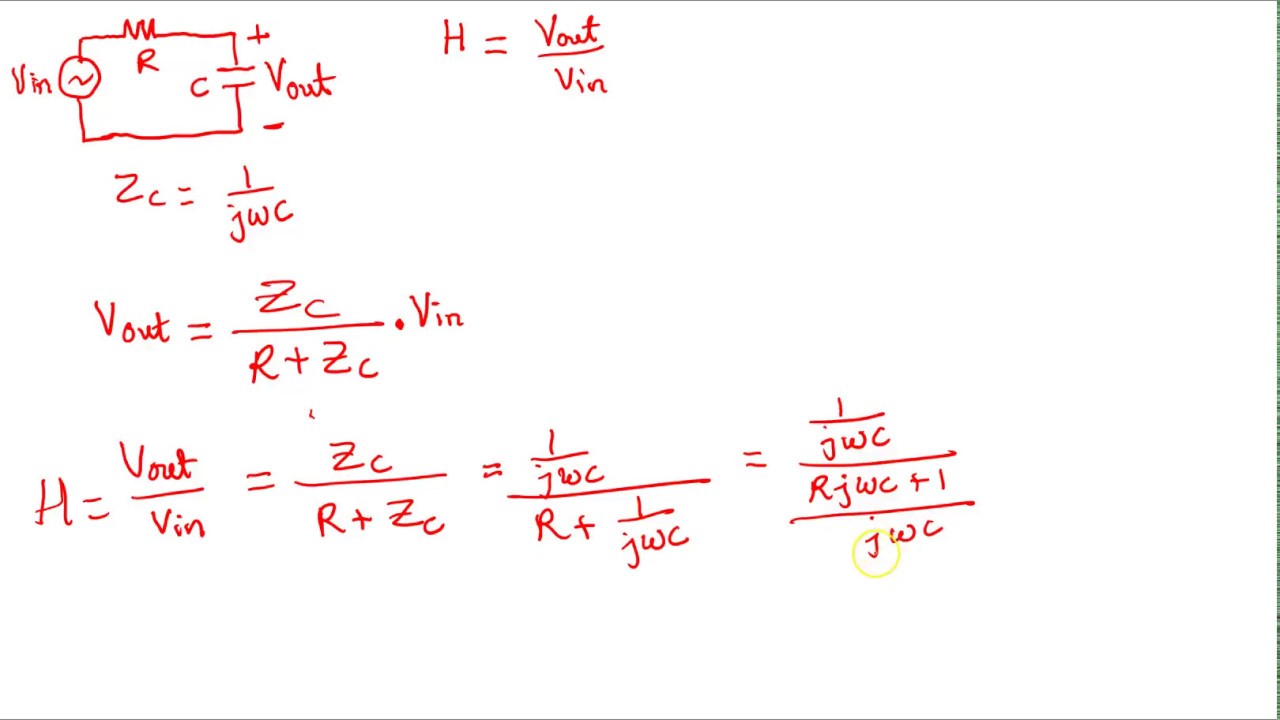 R
Vin
C
+
Vout
-
H = Vout / Vin
Zc = 1 / jωC
Vout = Zc / R + Zc . Vin
H = Vout / Vin = Zc / R + Zc = 1 / jωC / R + 1 / jωC = 1 / jωC / Rjωc + 1 / jωC